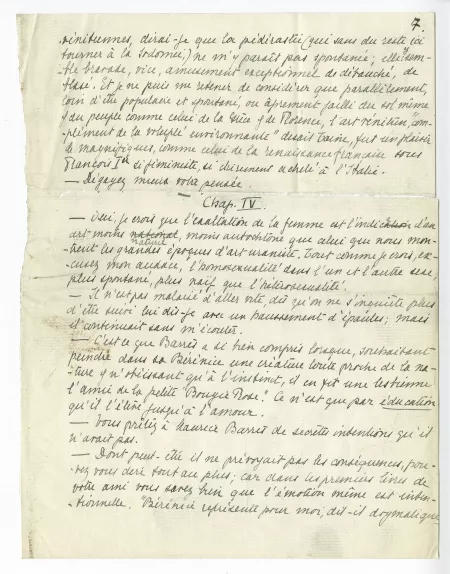 7.
vénitiennes, dirai-je que la pédérastie (qui sans du reste y ici
tourner à la Sodomie,) ne m'y paraît pas spontanée; elle y sem-
-ble bravade, vice, amusement exceptionnel de débauché, de
blasé. Et je ne puis me retenir de considérer que parallèlement,
loin d'être populaire et spontané, ou âprement jailli du sol même
y du peuple comme celui de la Grèce y de Florence, l'art vénitien "com-
-plément de la volupté environnante" disait Taine, fut un plaisir
de magnifiques, comme celui de la renaissance française sous
François Ier si féministe, si chèrement acheté à l'Italie.
— Dégagez mieux votre pensée.
Chap. IV.
— Oui, je crois que l'exaltation de la femme est l'indication d'un
art moins national, moins autochtone que celui que nous mon-
naturel
-trent les grandes époques d'art uraniste. Tout comme je crois, ex-
-cusez mon audace, l'homosexualité dans l'un et l'autre sexe,
plus spontanée, plus naïve que l'hétérosexualité.
— Il n'est pas malaisé d'aller vite, dès qu'on ne s'inquiète plus
d'être suivi lui dis-je avec un haussement d'épaules; mais
il continuait sans m'écouter.
— C'est ce que Barrès a si bien compris lorsque, souhaitant
peindre dans sa Bérénice une créature toute proche de la na-
-ture y n'obéissant qu'à l'instinct, il en fit une lesbienne
l'amie de la petite "Bougie Rose". Ce n'est que par éducation
qu'il l'élève jusqu'à l'amour.
— Vous prêtez à Maurice Barrès de secrètes intentions qu'il
n'avait pas.
— Dont peut-être il ne prévoyait pas les conséquences, pou-
-vez vous dire tout au plus; car dans les premiers livres de
votre ami vous savez bien que l'émotion même est inten-
-tionnelle. "Bérénice représente pour moi, dit-il dogmatique